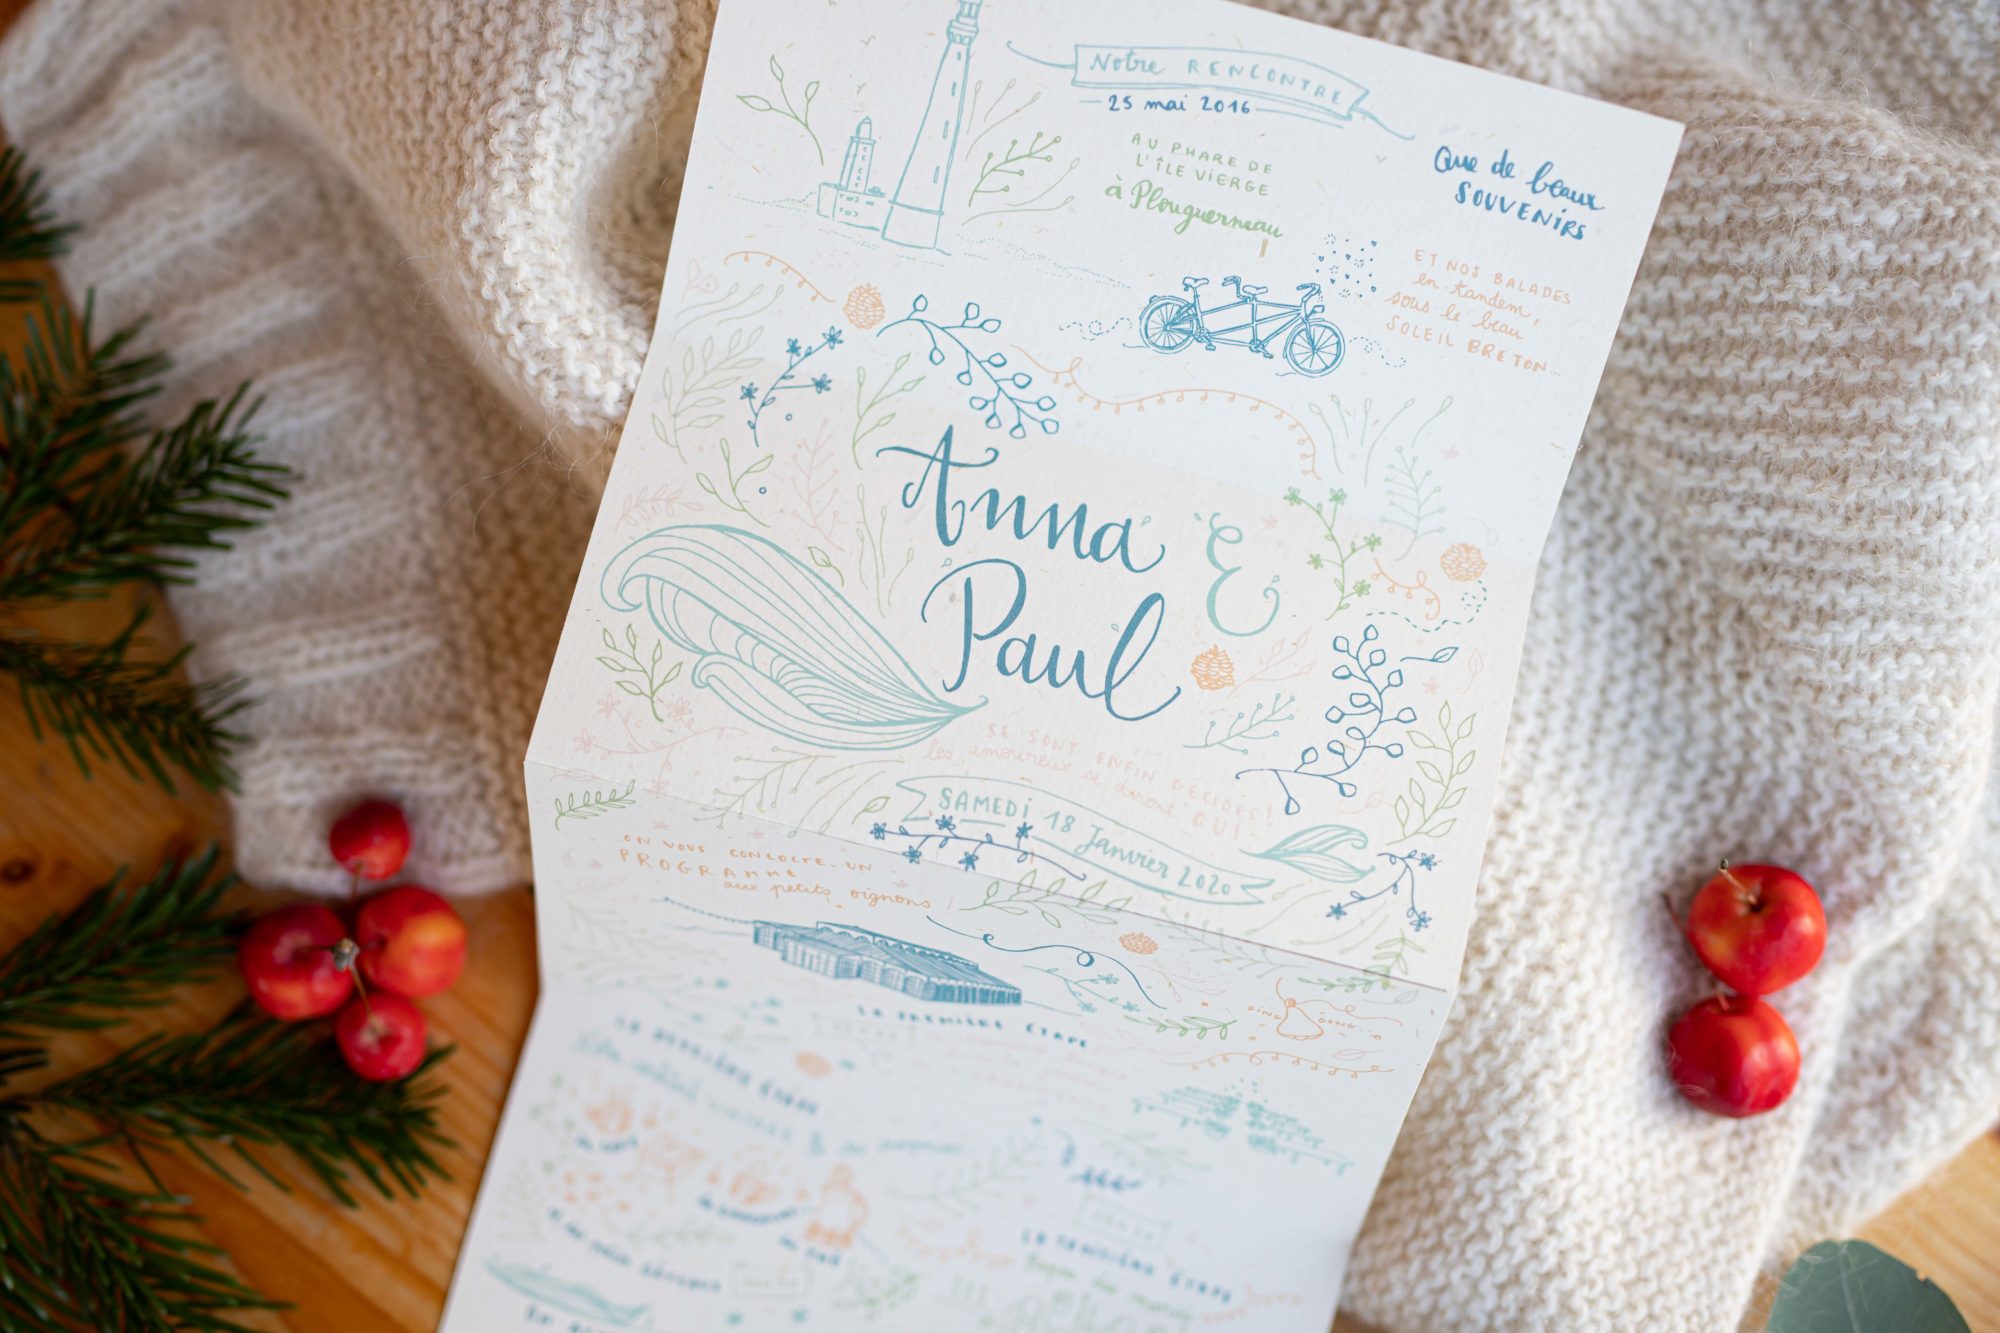 Notre RENCONTRE
25 mai 2016
AU PHARE DE
L'ÎLE VIERGE
à Plouguerneau
Que de beaux
SOUVENIRS
ET NOS BALADES
en tandem,
sous le beau
SOLEIL BRETON...
Anna &
Paul
SE SONT ENFIN DÉCIDÉS!
les amoureux se diront "OUI"
SAMEDI 18 Janvier 2020
ON VOUS CONCOCTE UN
PROGRAMME
aux petits oignons!
DING DONG...
LA PREMIÈRE ÉTAPE
LA DERNIÈRE ÉTAPE
LA TROISIÈME ÉTAPE